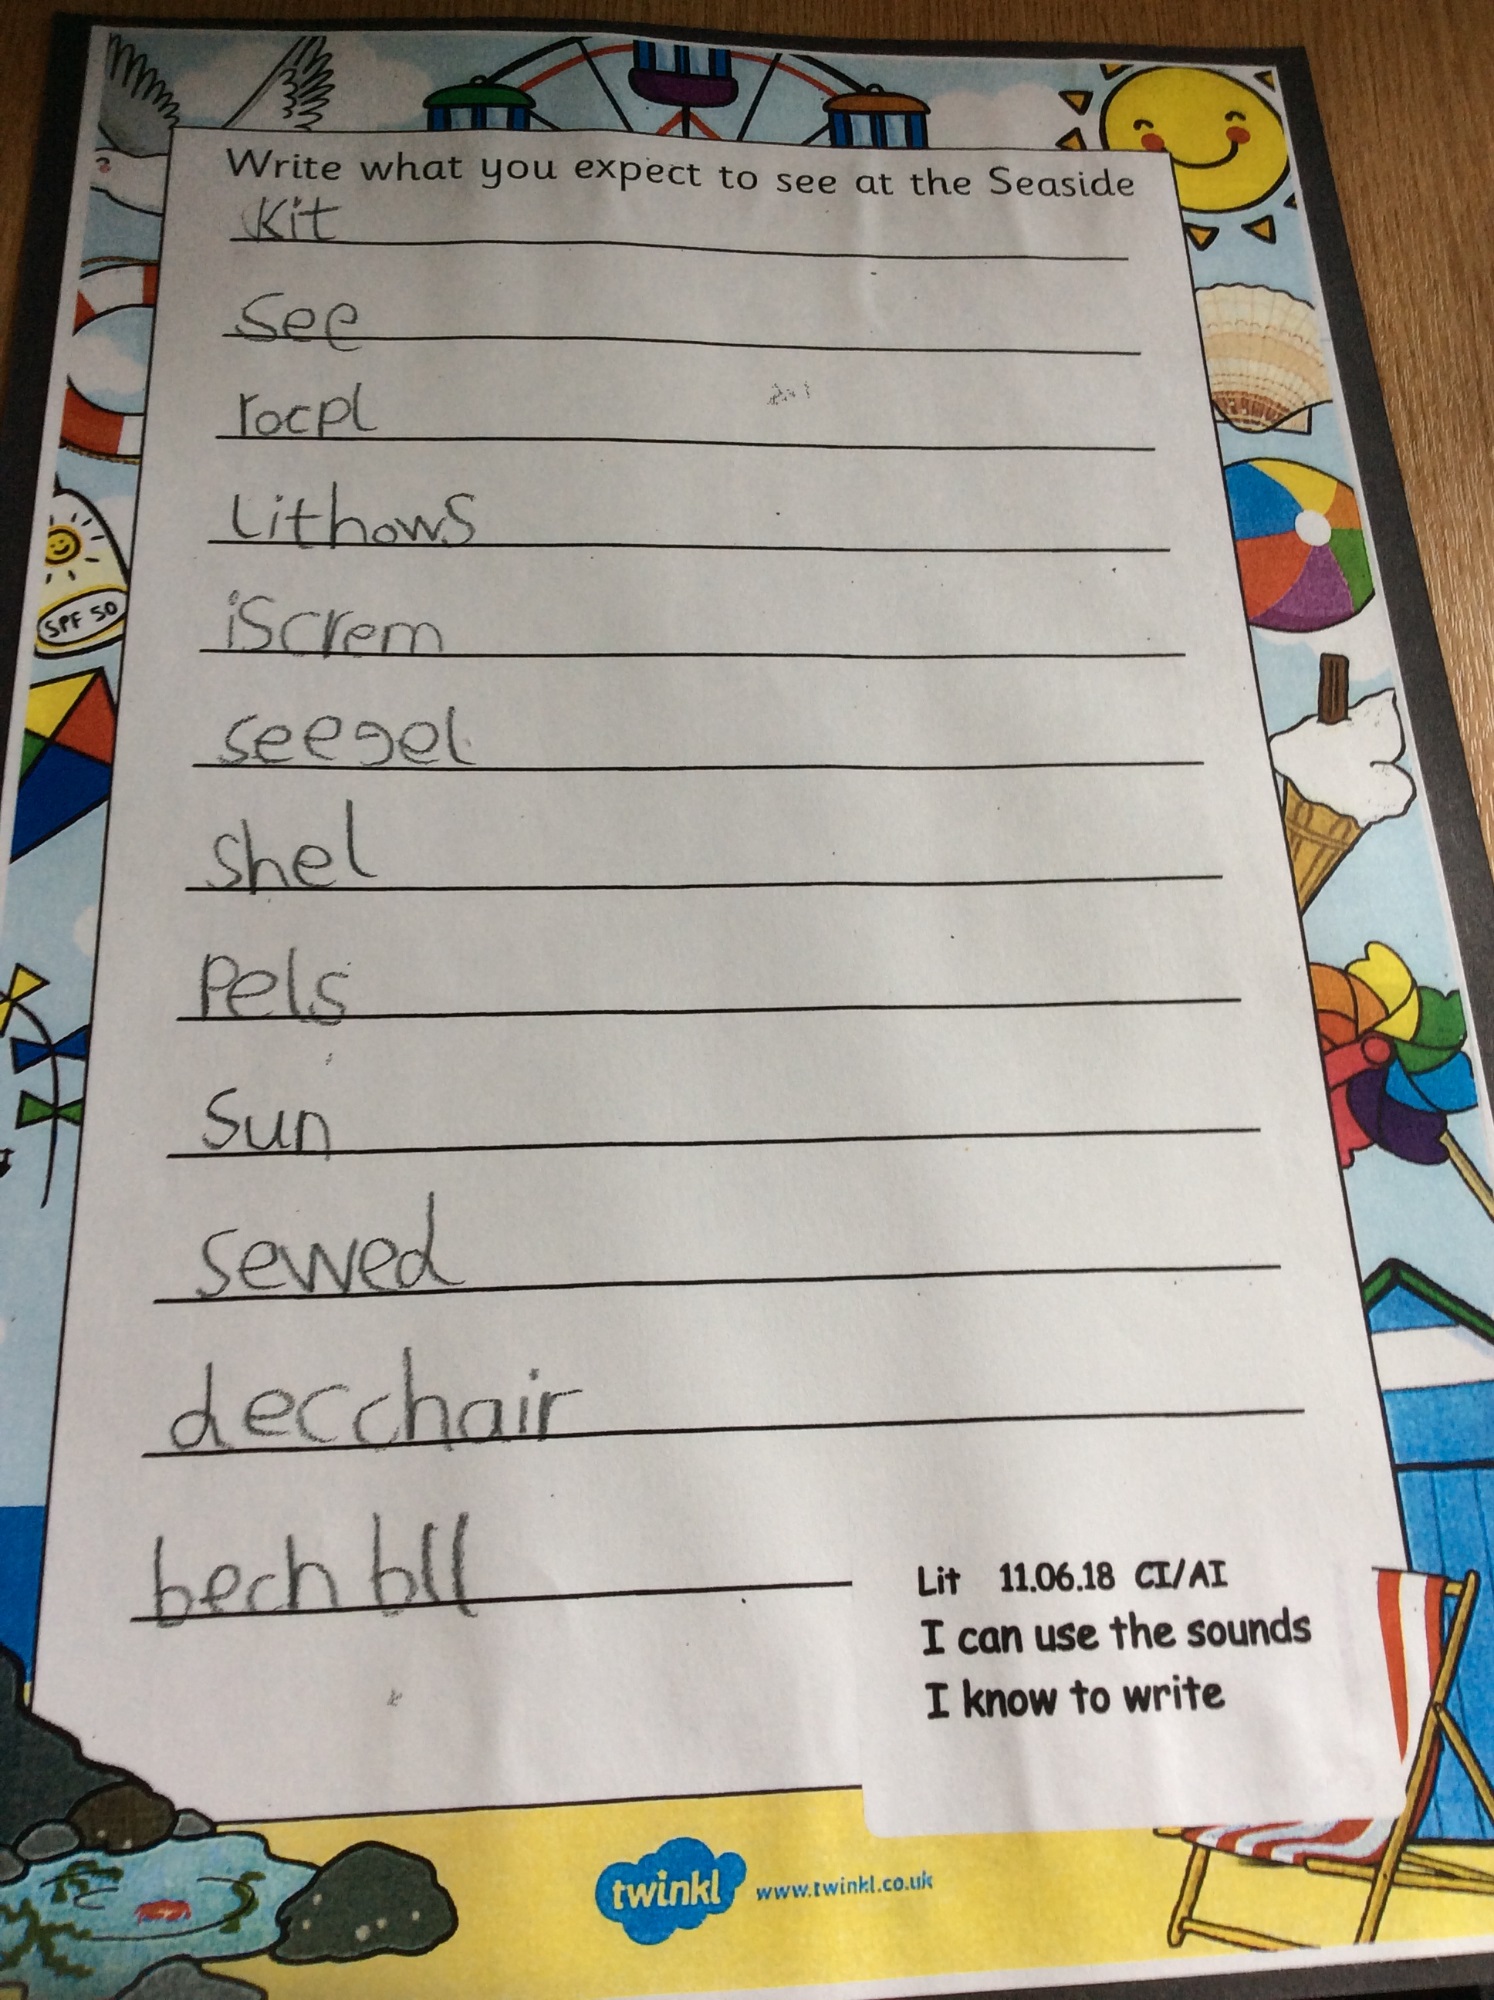 Write what you expect to see at the Seaside
kit
see
rocpl
Lithows
iscrem
seegel
shel
Pels
sun
sewed
decchair
bech bll
SPF 50
Lit 11.06.18 CI/AI
I can use the sounds
I know to write
twinkl www.twinkl.co.uk